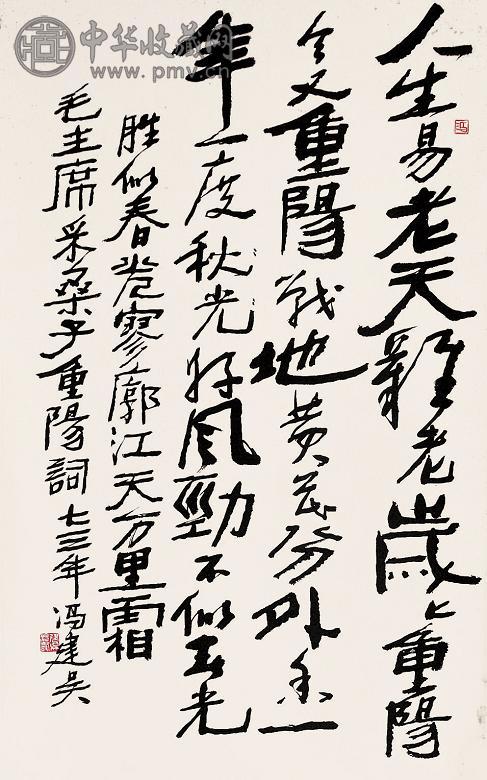 中华收藏网
www.pmv.cn
人生易老天難老歲々重陽
今又重陽戰地黄花分外香一
年一度秋光好风勁不似春光
胜似春光寥廓江天万里霜
毛主席采桑子重陽詞七三年冯建吴